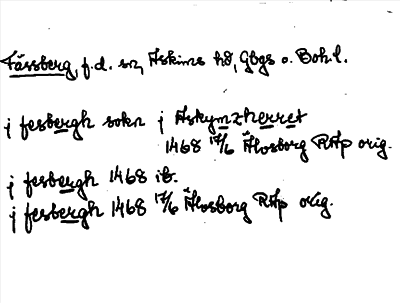 Fässberg, f.d. sn, Askims hd, Gbgs o. Boh.l.
j fesbergh sokn j Askymzherret
1468 17/6 Älvsborg RAp orig.
j fesbergh 1468 ib.
j fesbergh 1468 17/6 Älvsborg RAp orig.